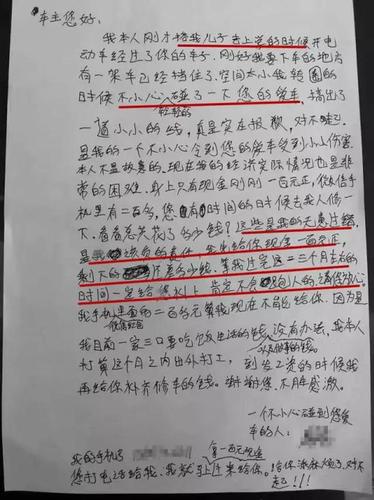 车主您好:
我本人刚才接我儿子去上学的时候开电
动车经过了你的车子。刚好我要下车的地方
有一架车已经挡住了。空间太小我转圈的
时候不小心碰了一下您的爱车,搞出了
轻轻的
一道小小的线,真是实在抱歉,对不起了。
是我的一个不小心令到您的爱车受到小小伤害
本人不是故意的。现在我的经济实际情况也是非
常的困难。身上只有现金刚刚一百元正,微信手
机里有二百多,您有时间的时候去找人修一
下。看看总共花了多少钱?这些是我的无意过错,
是我该负的责任,我先给你现金一百元正,
剩下的差多少钱。等我在这三个月左右的
时间一定给你补上 肯定不会跑人的请您放心
我手机里面的二百多元等我现在不能给你。因为是
微信红包
我目前一家三口要吃饭生活的钱。没有办法,我本人
打算这个月之内出外打工,到发工资的时候我
再给你补齐修车的钱。谢谢您、不胜感激。
一个不小心碰到您爱
车的人:
我的手机号
拿一百元现金
您打电话给我,我就马上来给你。给你添麻烦了,对不
起了!!!